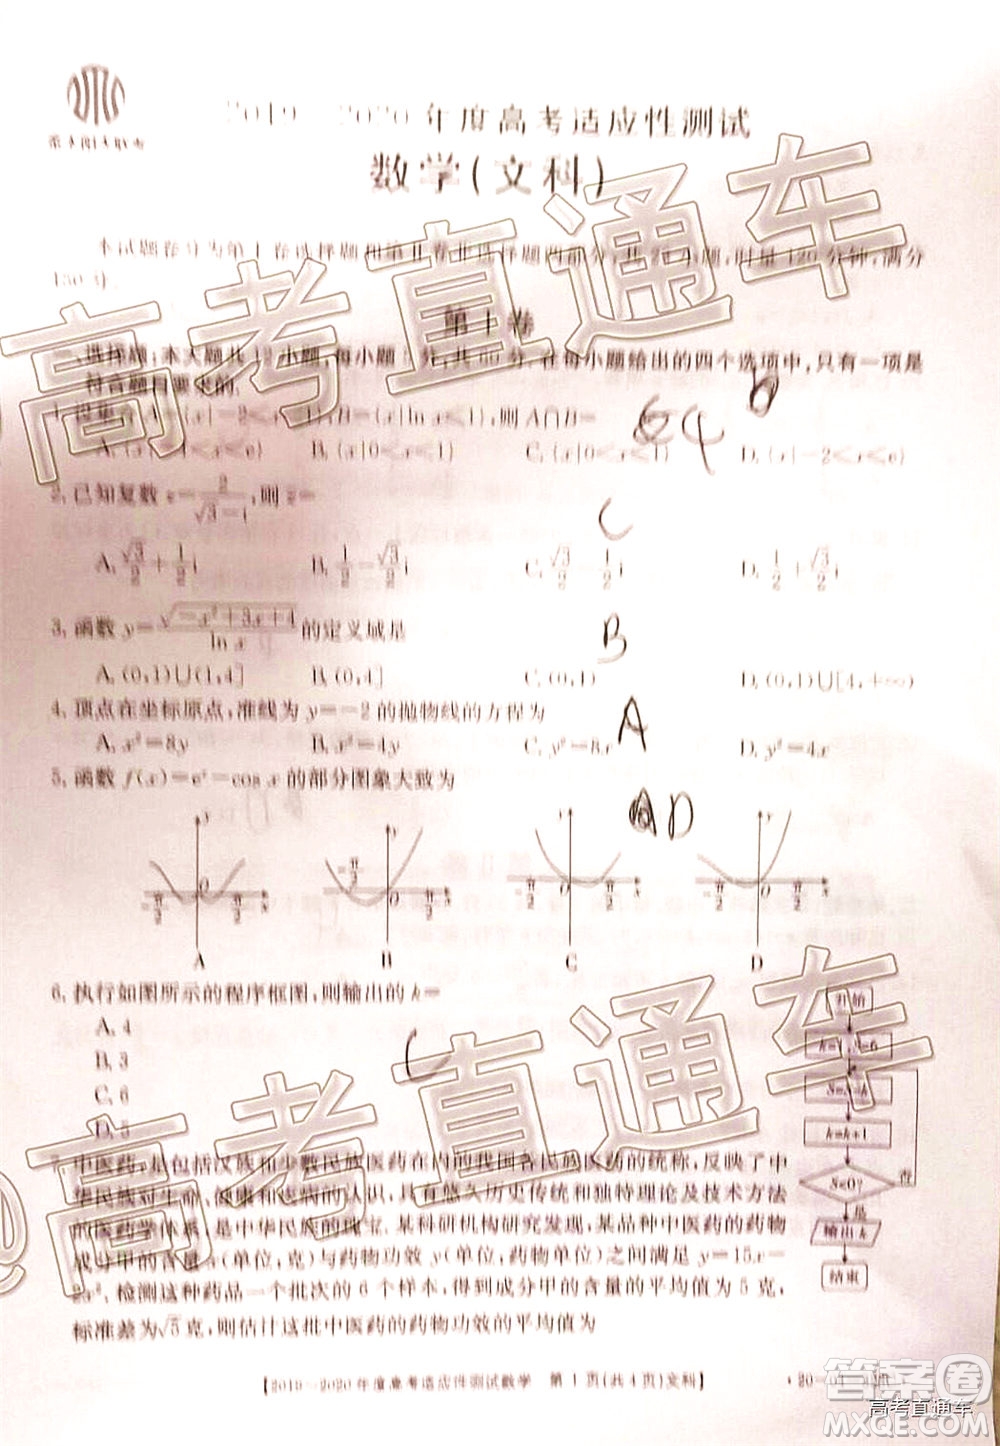 2019—2020年度高考适应性测试
数学(文科)
本试题卷分为第Ⅰ卷选择题和第Ⅱ卷非选择题两部分,共 小题,时量120分钟,满分
150分.
第Ⅰ卷
一、选择题:本大题共12小题,每小题5分,共60分.在每小题给出的四个选项中,只有一项是
符合题目要求的.
1.设集合A={x|-2<x<1},B={x|ln x<1},则A∩B=
A.{x|<x<e} B.{x|0<x<1} C. D.{x|-2<x<e}
2.已知复数z=2/(√3-i),则z̄=
A.√3/2+1/2i B.1/2-√3/2i C.√3/2-1/2i D.
3.函数y=√(-x²+3x+4)/ln x的定义域是
A.(0,1)∪(1,4] B.(0,4] C.(0,1) D.(0,1)∪[4,+∞)
4.顶点在坐标原点,准线为y=-2的抛物线的方程为
A.x²=8y B.x²=4y C.y²=8x D.y²=4x
5.函数f(x)=eˣ-cos x的部分图象大致为
A B C D
6.执行如图所示的程序框图,则输出的k=
A.4
B.3
C.6
D.5
开始
k=k+1
S<0?
否
是
输出k
结束
7.中医药,是包括汉族和少数民族医药在内的我国各民族医药的统称,反映了中
华民族对生命、健康和疾病的认识,具有悠久历史传统和独特理论及技术方法
的医药学体系,是中华民族的瑰宝.某科研机构研究发现,某品种中医药的药物
成分甲的含量x(单位:克)与药物功效y(单位:药物单位)之间满足y=15x-
2x².检测这种药品一个批次的6个样本,得到成分甲的含量的平均值为5克,
标准差为√5克,则估计这批中医药的药物功效的平均值为
【2019—2020年度高考适应性测试数学 第1页(共4页)文科】
高考直通车
高考直通车
高考直通车
答案圈
MXQE.COM